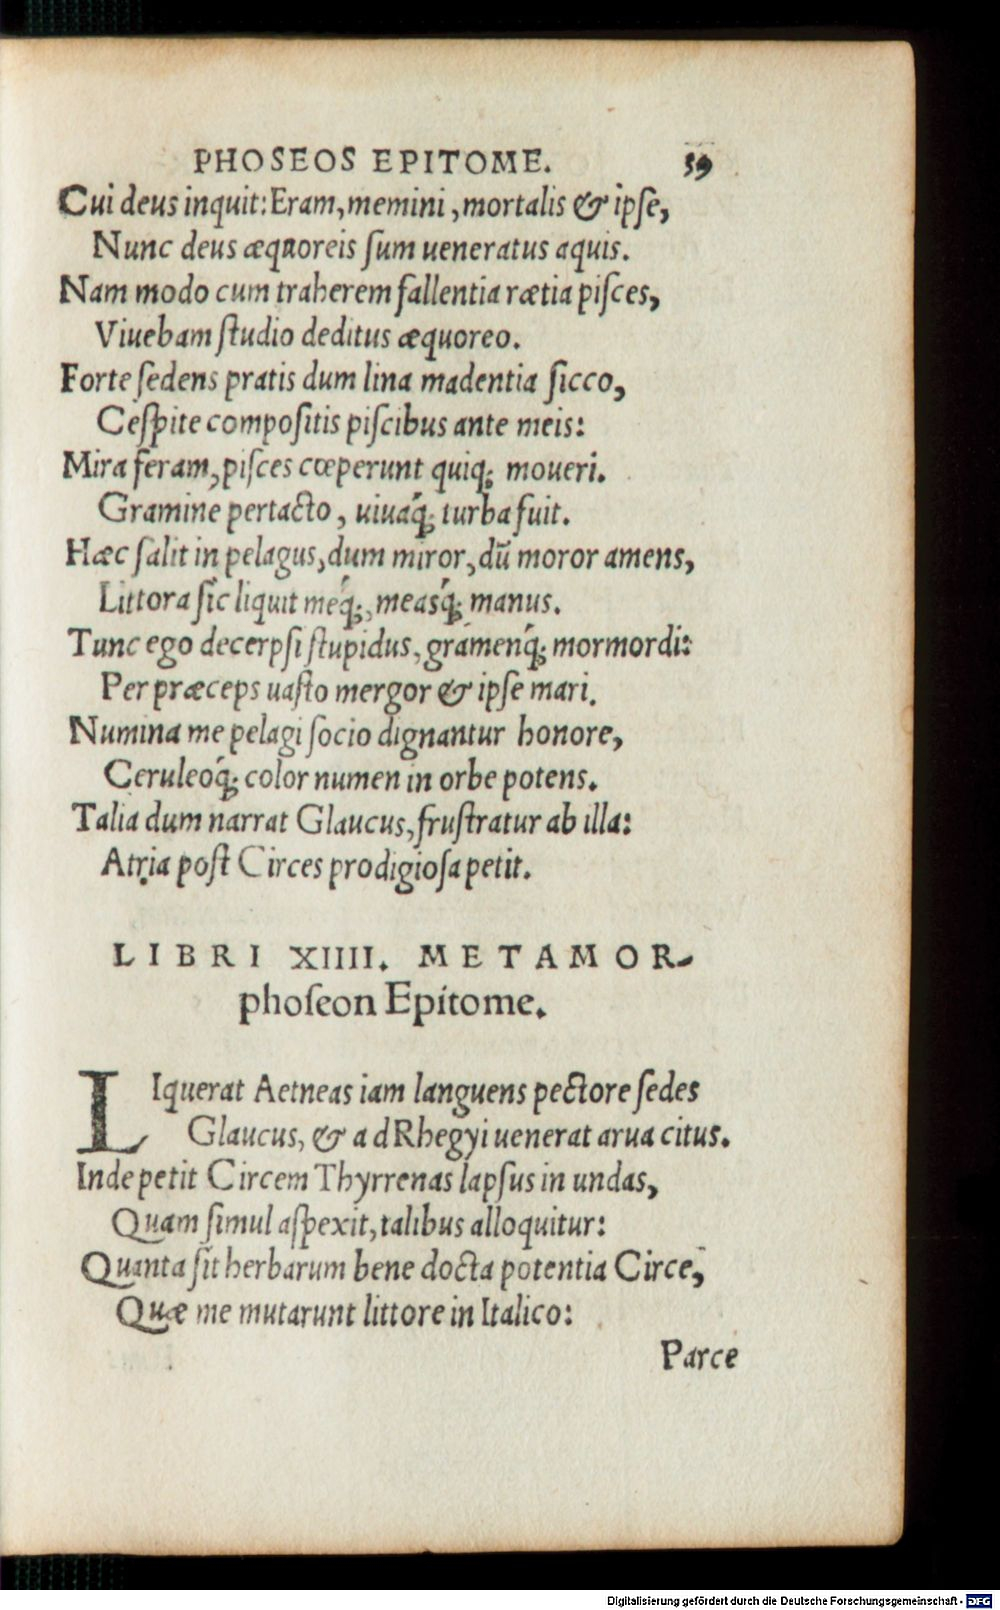 PHOSEOS EPITOME. 59
Cui deus inquit: Eram, memini, mortalis & ipſe,
Nunc deus æquoreis ſum ueneratus aquis.
Nam modo cum traherem fallentia rætia piſces,
Viuebam ſtudio deditus æquoreo.
Forte ſedens pratis dum lina madentia ſicco,
Ceſpite compoſitis piſcibus ante meis:
Mira feram, piſces cœperunt quiq; moueri.
Gramine pertacto, uiuáq; turba fuit.
Hæc ſalit in pelagus, dum miror, dū moror amens,
Littora ſic liquit méq;, measq́; manus.
Tunc ego decerpſi ſtupidus, gramenq́; mormordi:
Per præceps uaſto mergor & ipſe mari.
Numina me pelagi ſocio dignantur honore,
Ceruleoq́; color numen in orbe potens.
Talia dum narrat Glaucus, fruſtratur ab illa:
Atria poſt Circes prodigioſa petit.
LIBRI XIIII. METAMOR-
phoſeon Epitome.
LIquerat Aetneas iam languens pectore ſedes
Glaucus, & ad Rhegyi uenerat arua citus.
Inde petit Circem Thyrrenas lapſus in undas,
Quam ſimul aſpexit, talibus alloquitur:
Quanta ſit herbarum bene docta potentia Circe,
Quæ me mutarunt littore in Italico:
Parce
Digitalisierung gefördert durch die Deutsche Forschungsgemeinschaft - DFG